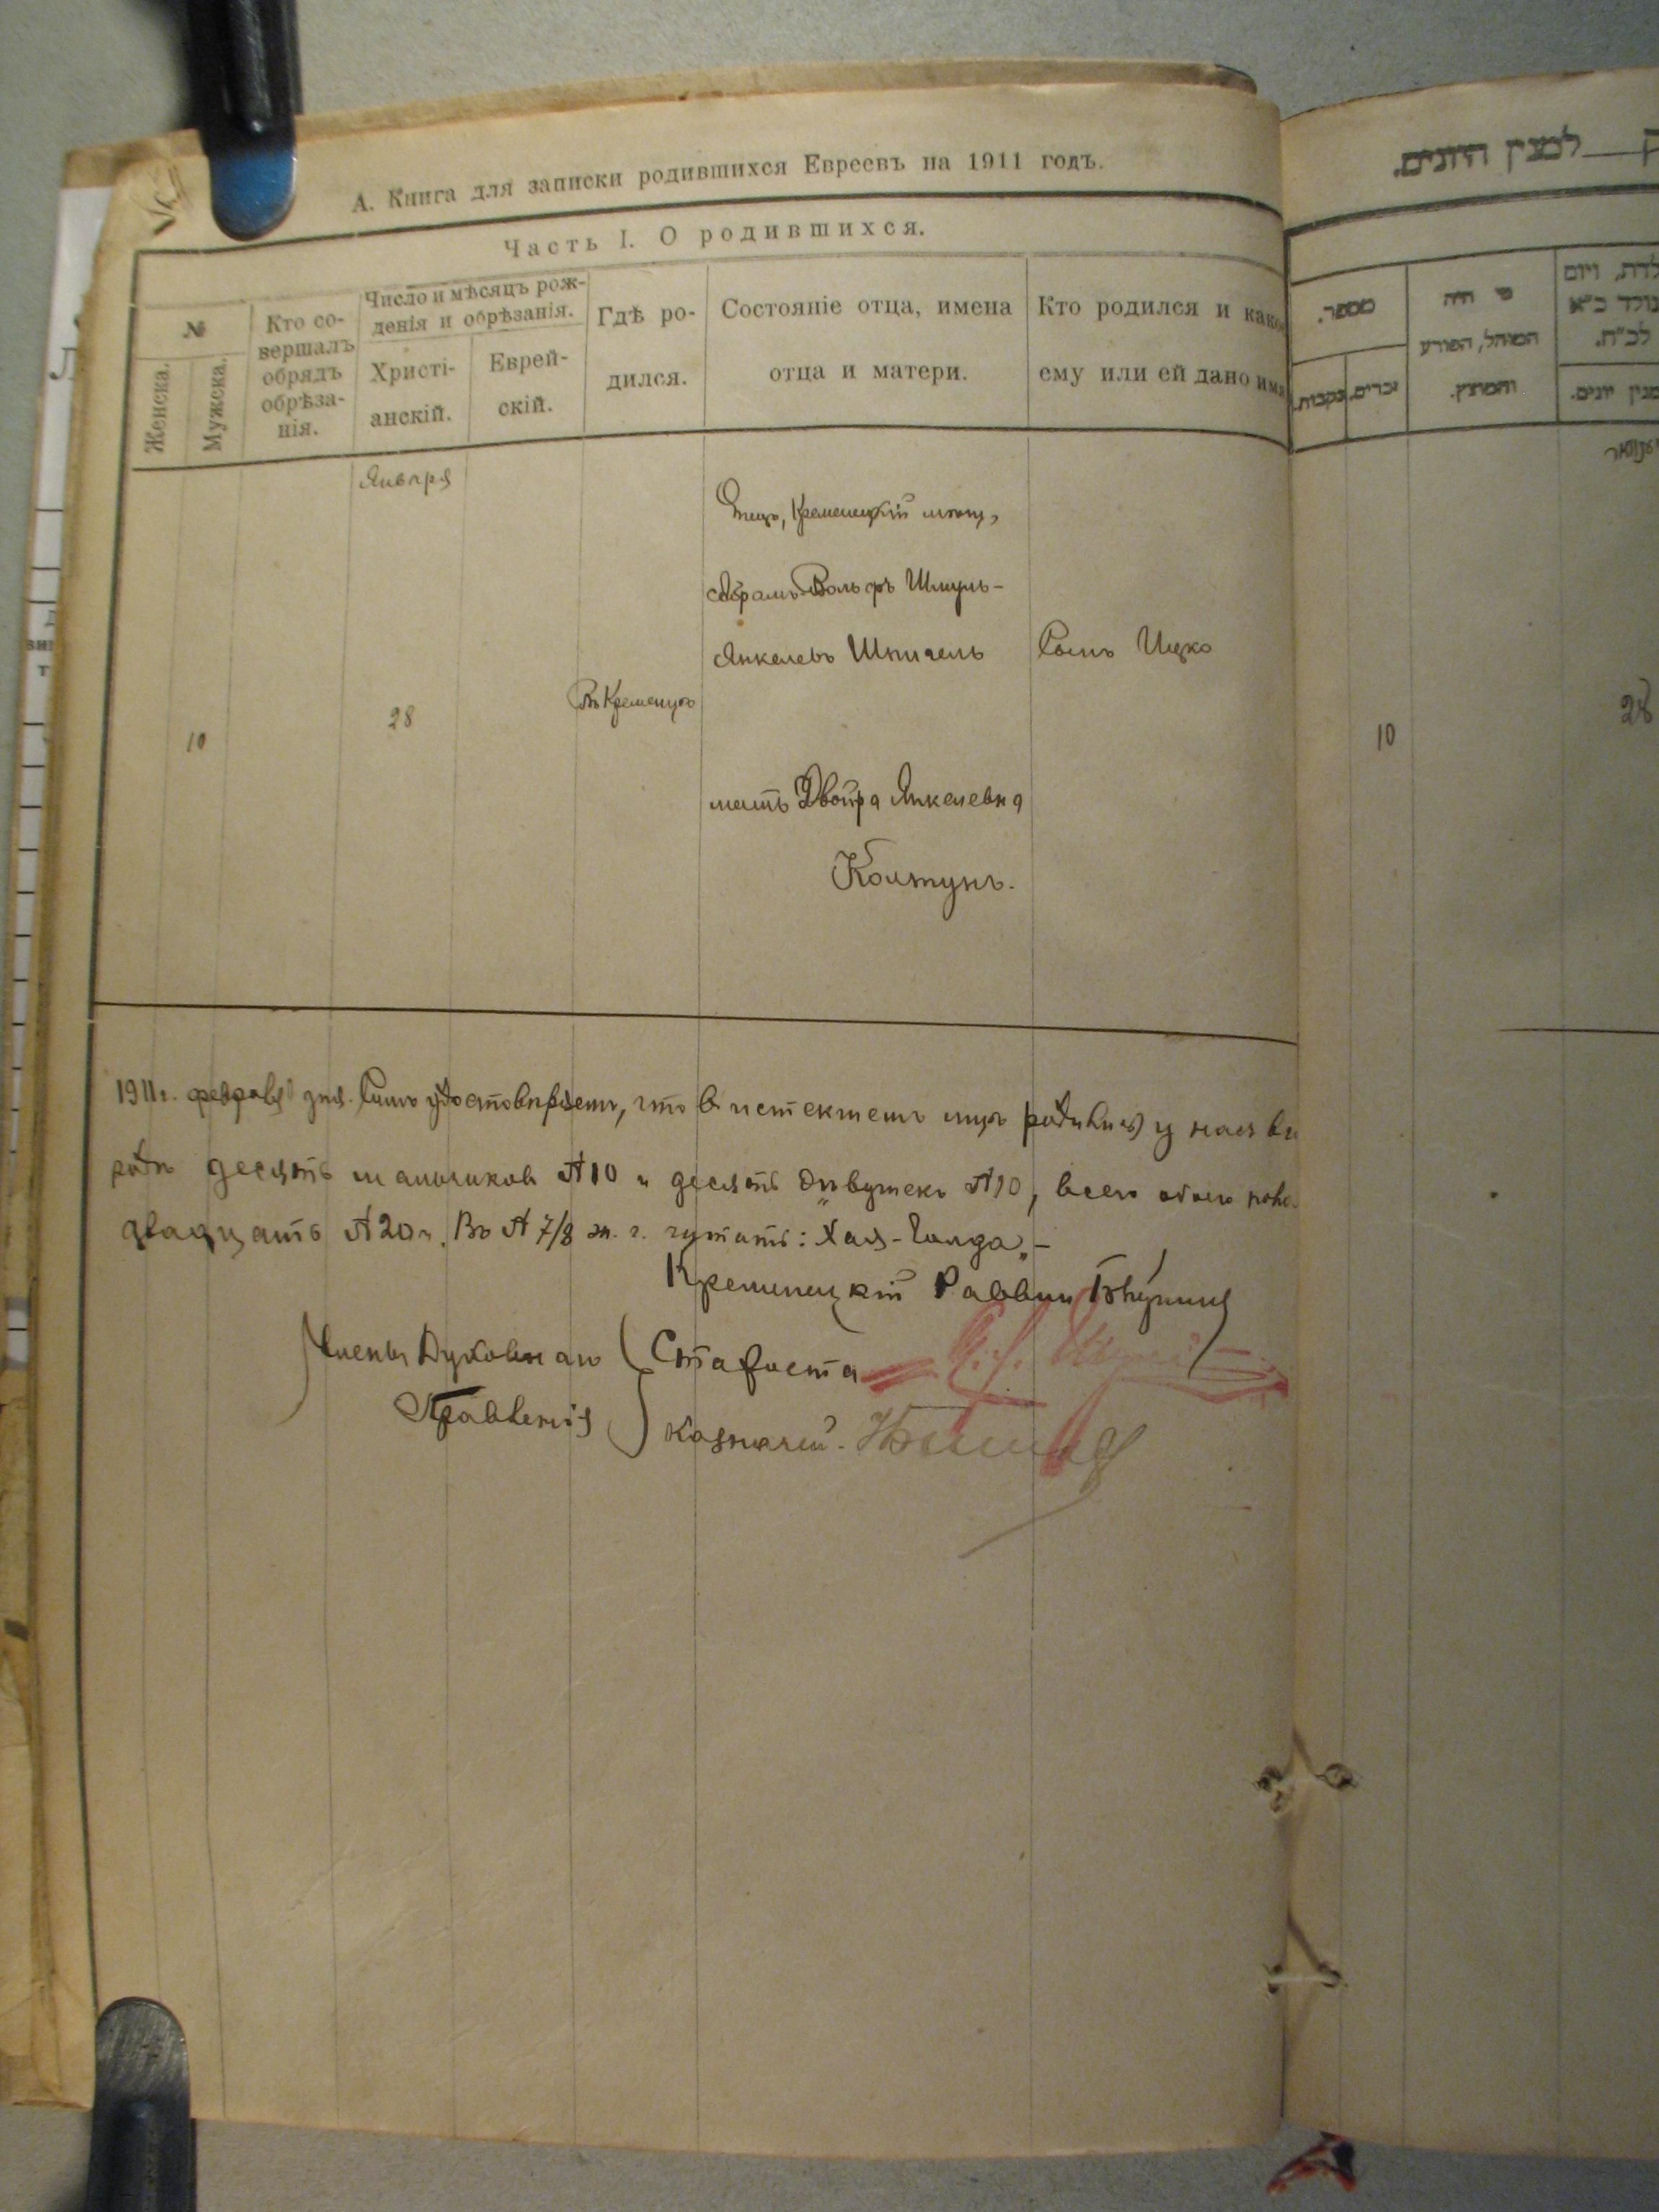 А. Книга для записки родившихся Евреевъ на 1911 годъ.
Часть I. О родившихся.
№
Женска.
Мужска.
Кто со-
вершалъ
обрядъ
обрѣза-
нія.
Число и мѣсяцъ рож-
денія и обрѣзанія.
Христі-
анскій.
Еврей-
скій.
Гдѣ ро-
дился.
Состояніе отца, имена
отца и матери.
Кто родился и какое
ему или ей дано имя
Января
10
28
Въ Кременцѣ
Отецъ, Кременецкій мѣщ,
Абрамъ-Вольфъ Шмуль-
Янкелевъ Шпигель
Сынъ Ицко
мать Двойра Янкелевна
Колтунъ.
1911г. февраля дня. Симъ удостовѣряемъ, что в истекшемъ мцѣ родились у насъ въ
родѣ десять мальчиковъ №10 и десять дѣвушекъ №10, всего обоего пола
двадцать №20ч. Въ № 7/8 ж. г. читать: Хая-Голда„-
Кременецкій Раввинъ
Члены Духовнаго
Правленія
Староста
Казначей.
למנין היונים.
מספר.
נקבות.
זכרים.
מי היה
המוהל, הפורע
והמוצץ.
לדת, ויום
נולד כ״א
לכ״ח.
מנין יונים.
יאנואר
10
28